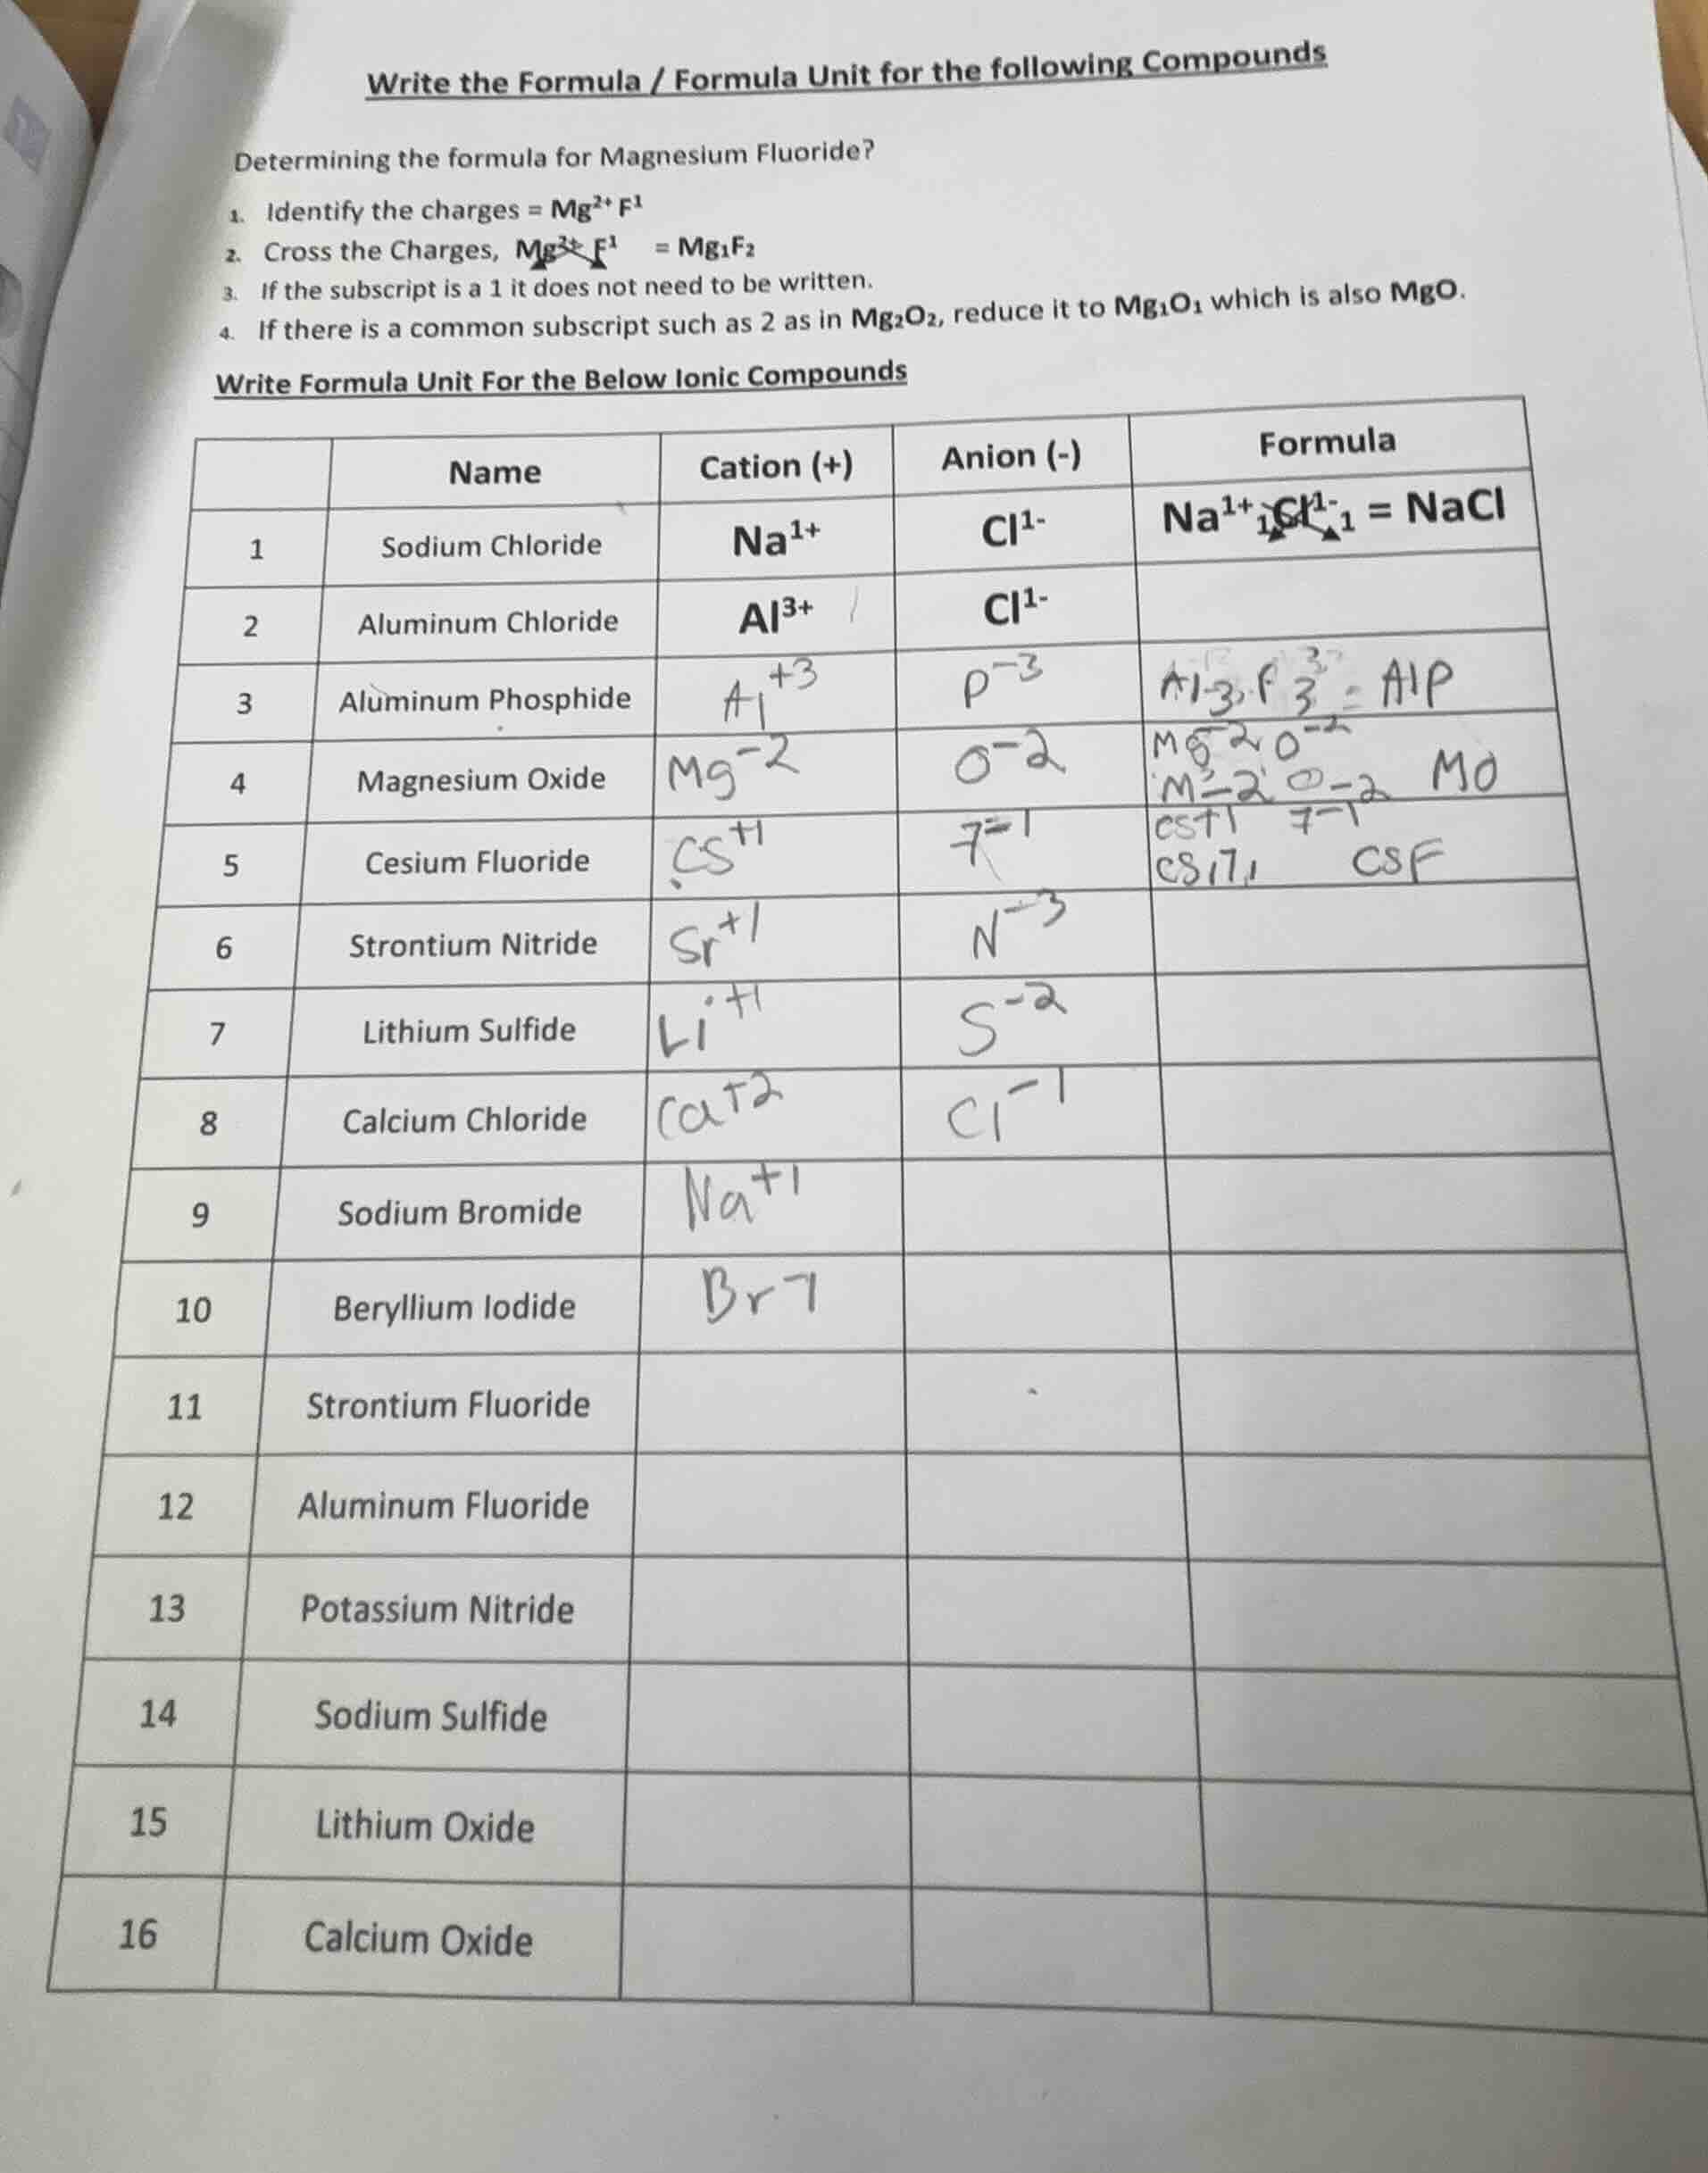 Write the Formula / Formula Unit for the following Compounds
Determining the formula for Magnesium Fluoride?
1. Identify the charges = Mg²⁺ F¹
2. Cross the Charges, Mg²⁺ F¹ = Mg₁F₂
3. If the subscript is a 1 it does not need to be written.
4. If there is a common subscript such as 2 as in Mg₂O₂, reduce it to Mg₁O₁ which is also MgO.
Write Formula Unit For the Below Ionic Compounds
Name Cation (+) Anion (-) Formula
1 Sodium Chloride Na¹⁺ Cl¹⁻ Na¹⁺₁Cl¹⁻₁ = NaCl
2 Aluminum Chloride Al³⁺ Cl¹⁻
3 Aluminum Phosphide Al⁺³ P⁻³ Al₋₃ P ₃ = AlP
4 Magnesium Oxide Mg⁻² O⁻² Mg⁻² O⁻²
M₋₂ O₋₂ MO
5 Cesium Fluoride Cs⁺¹ 7⁻¹ Cs⁺¹ 7⁻¹
CS₁7₁ CSF
6 Strontium Nitride Sr⁺¹ N⁻³
7 Lithium Sulfide Li⁺¹ S⁻²
8 Calcium Chloride Ca⁺² Cl⁻¹
9 Sodium Bromide Na⁺¹
10 Beryllium Iodide Br
11 Strontium Fluoride
12 Aluminum Fluoride
13 Potassium Nitride
14 Sodium Sulfide
15 Lithium Oxide
16 Calcium Oxide